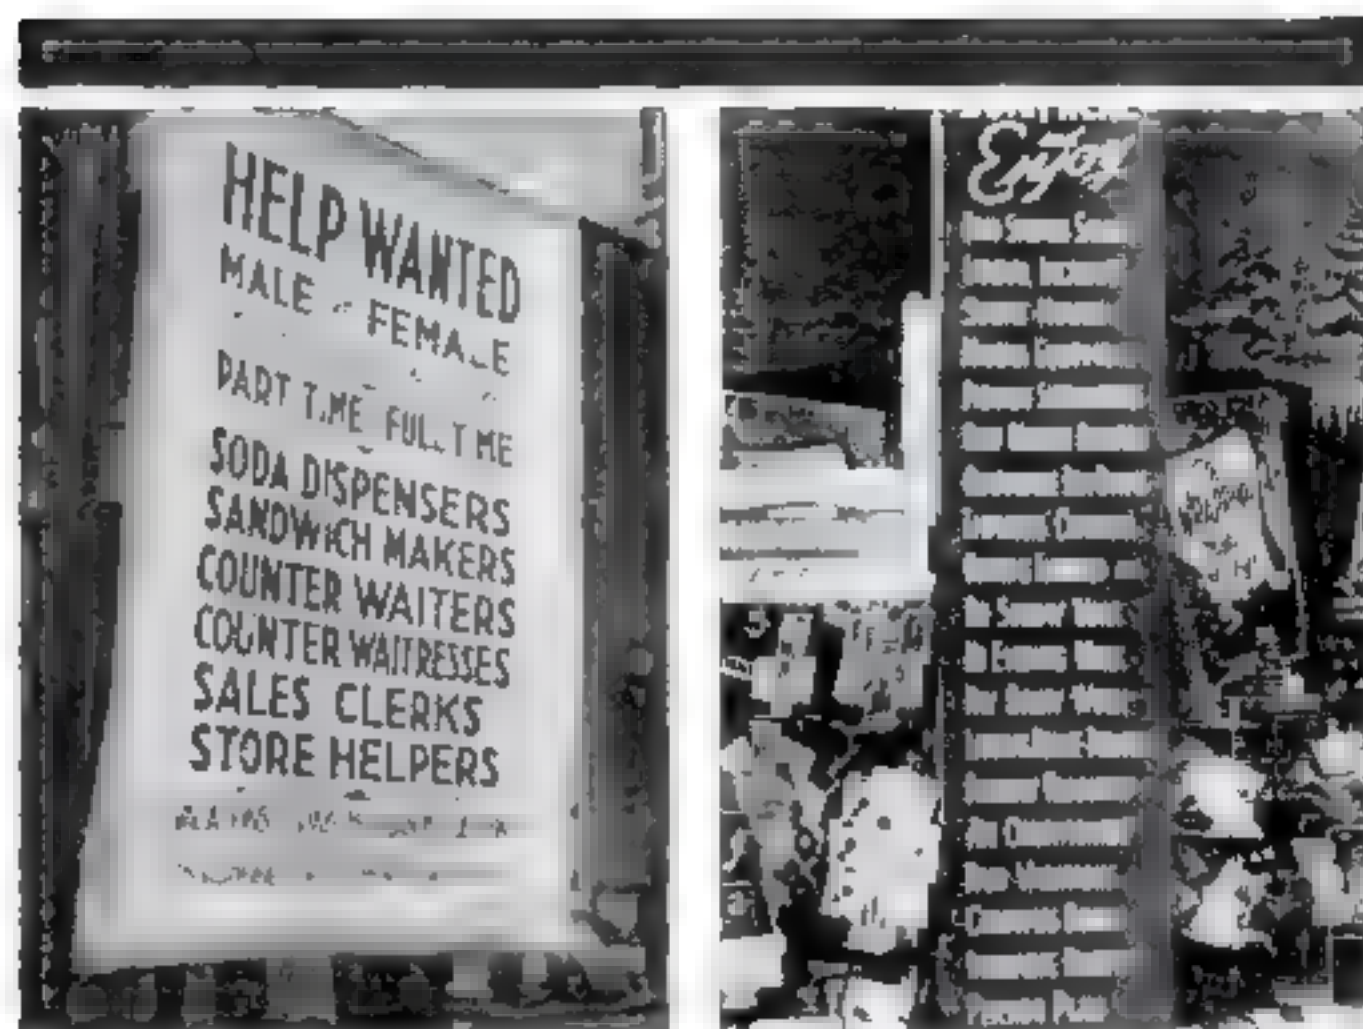 HELP WANTED
MALE - FEMALE
PART TIME FULL TIME
SODA DISPENSERS
SANDWICH MAKERS
COUNTER WAITERS
COUNTER WAITRESSES
SALES CLERKS
STORE HELPERS
Enjoy